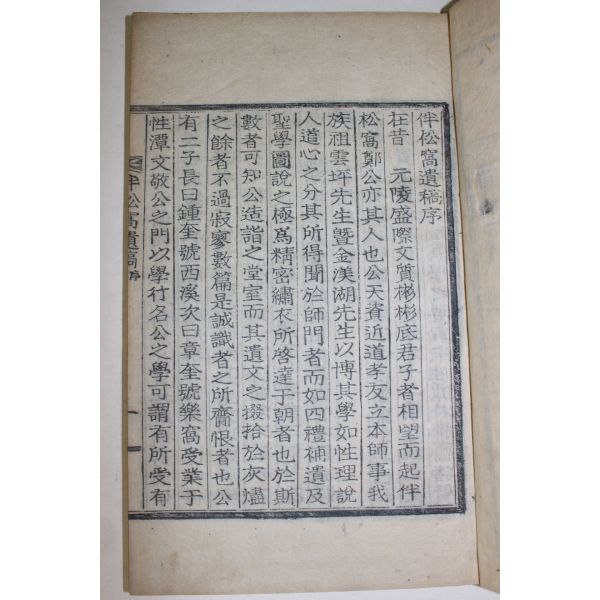 伴松窩遺稿序
在昔 元陵盛際文質彬彬底君子者相望而起伴
松窩鄭公亦其人也公天資近道孝友立本師事我
族祖雲坪先生曁金渼湖先生以博其學如性理說
人道心之分其所得聞於師門者而如四禮補遺及
聖學圖說之極爲精密繡衣所啓達于朝者也於斯
數者可知公造詣之堂室而其遺文之掇拾於灰燼
之餘者不過寂寥數篇是誠識者之所齎恨者也公
有二子長曰鍾奎號西溪次曰章奎號樂窩受業于
性潭文敬公之門以學行名公之學可謂有所受有
伴松窩遺稿 序